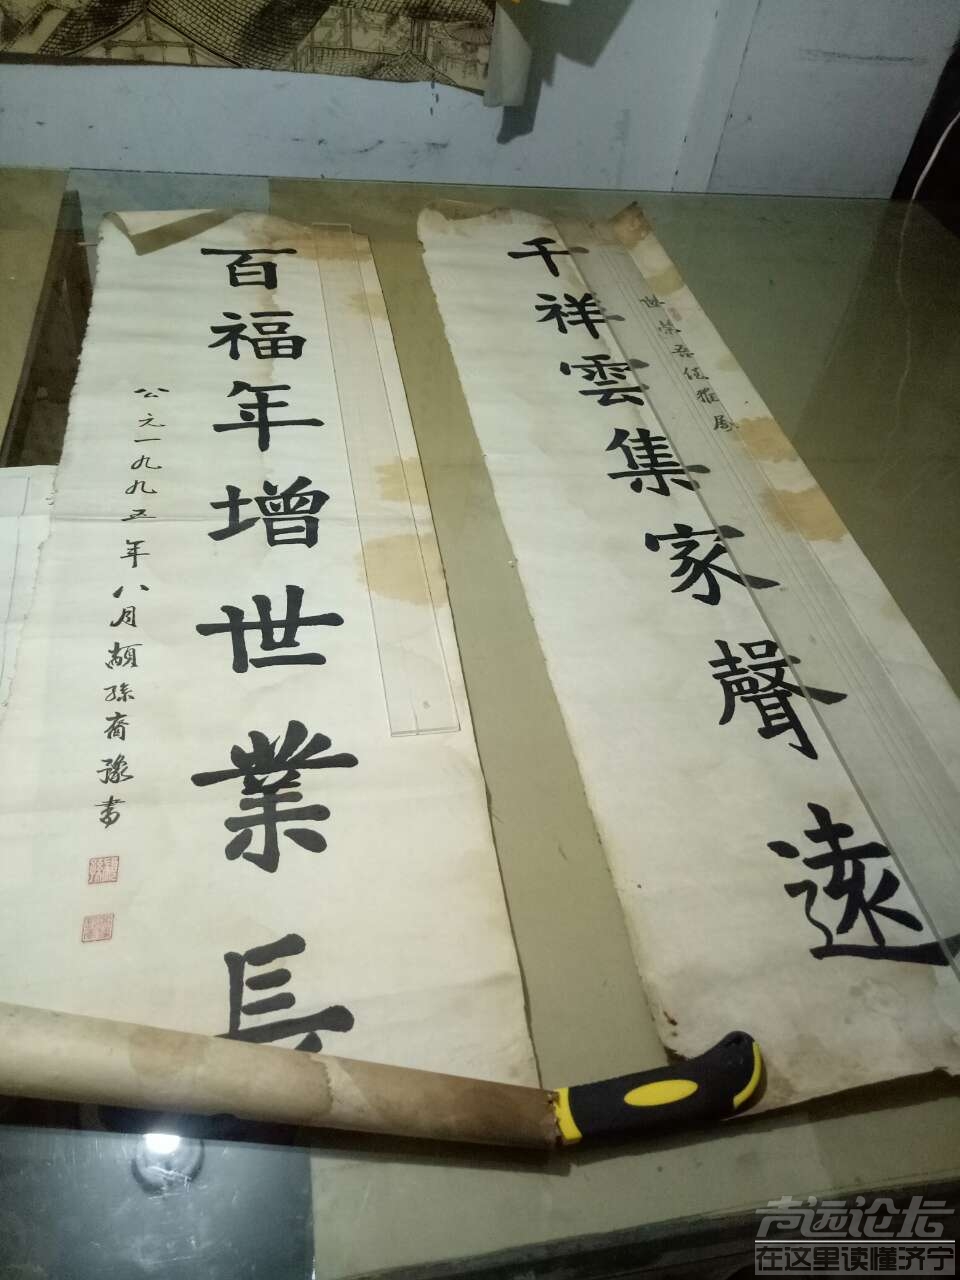 千祥雲集家聲遠
世榮吾侄雅屬
百福年增世業長
公元一九九五年八月顓孫齊豫書
声远论坛
在这里读懂济宁